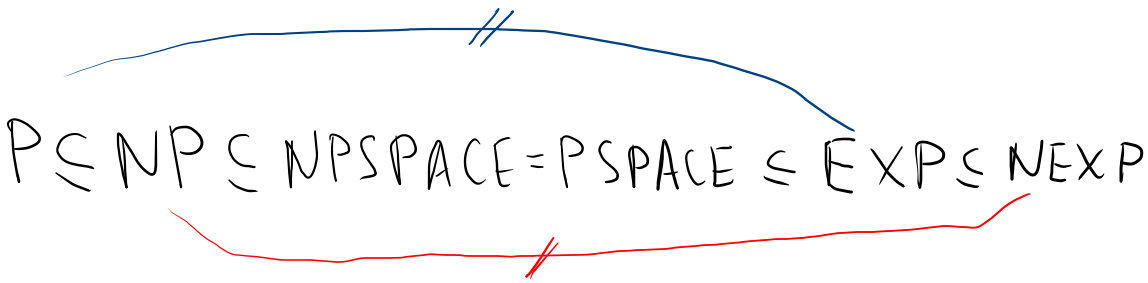 P ⊆ NP ⊆ NPSPACE = PSPACE ⊆ EXP ⊆ NEXP